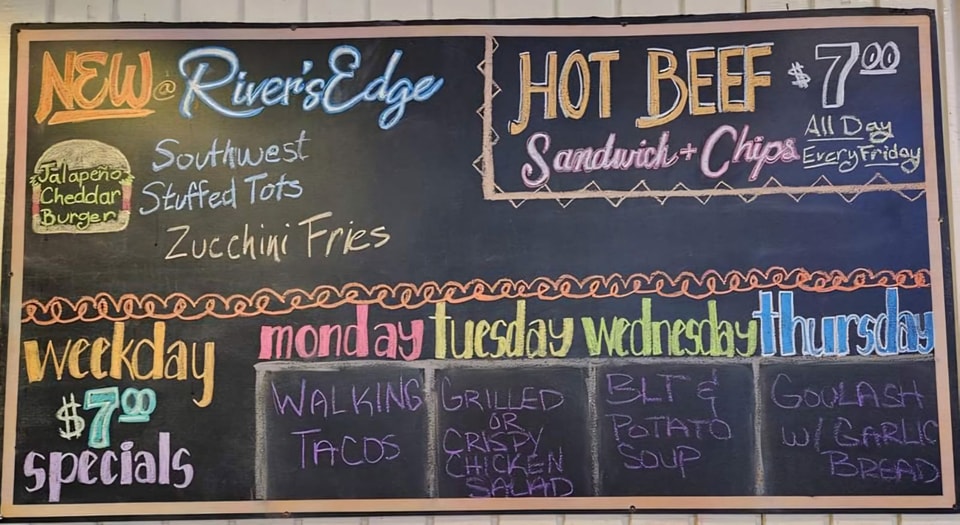 NEW @ River'sEdge
Jalapeño
Cheddar
Burger
Southwest
Stuffed Tots
Zucchini Fries
HOT BEEF $7.00
Sandwich + Chips
All Day
Every Friday
weekday
$7.00
specials
monday
WALKING
TACOS
tuesday
GRILLED
OR
CRISPY
CHICKEN
SALAD
wednesday
BLT &
POTATO
SOUP
thursday
GOULASH
W/ GARLIC
BREAD